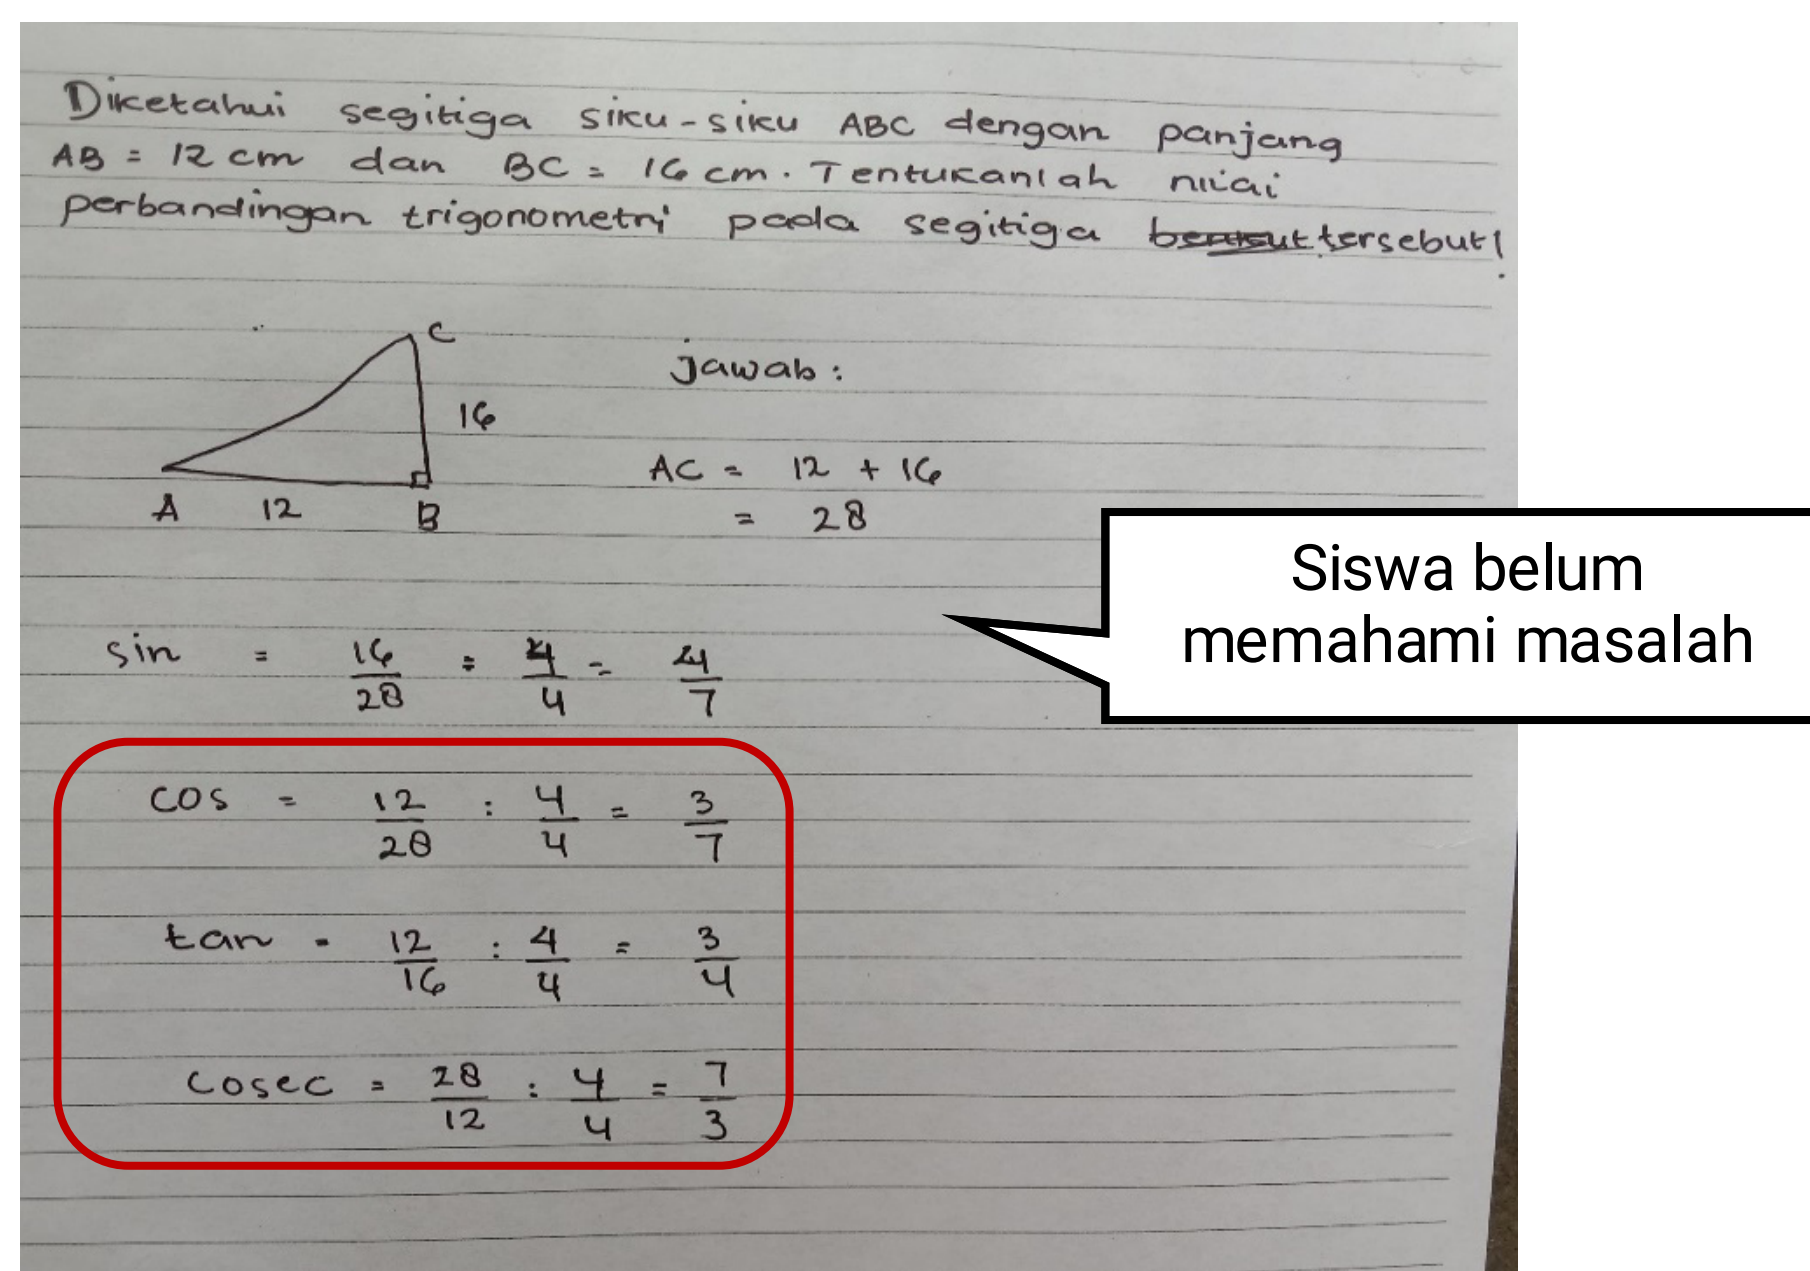 Diketahui segitiga siku-siku ABC dengan panjang
AB = 12 cm dan BC = 16 cm. Tentukanlah nilai
perbandingan trigonometri pada segitiga tersebut!
C
16
A 12 B
jawab:
AC = 12 + 16
= 28
Siswa belum
memahami masalah
sin = 16/28 : 4/4 = 4/7
cos = 12/28 : 4/4 = 3/7
tan = 12/16 : 4/4 = 3/4
cosec = 28/12 : 4/4 = 7/3